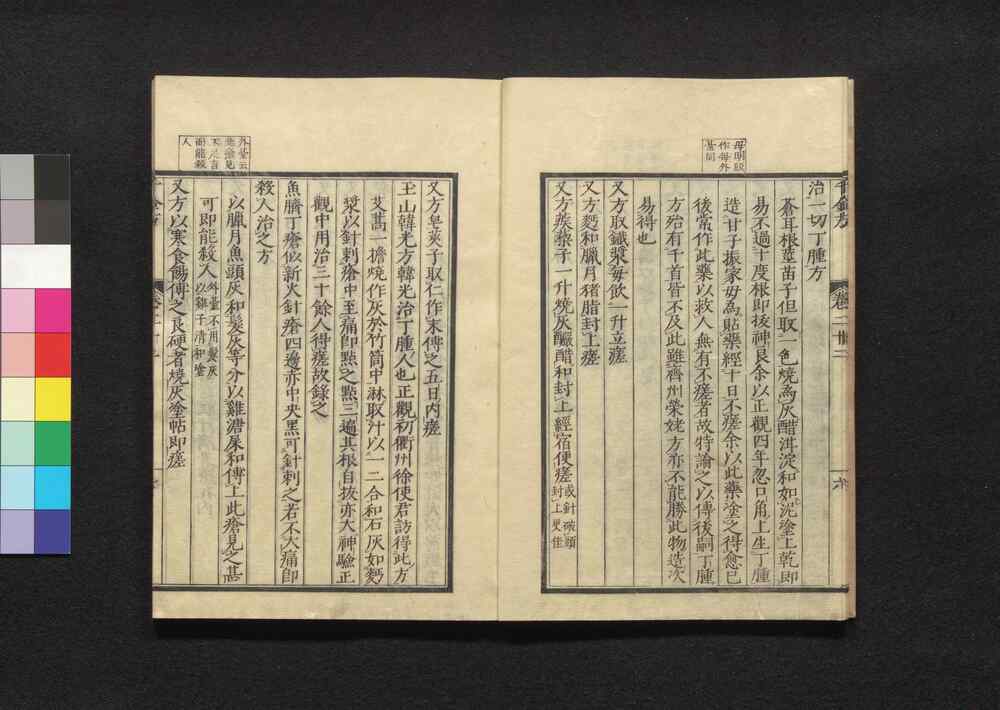 治一切丁腫方
蒼耳根莖苗子但取一色燒為灰醋泔淀和如泥塗上乾即
易不過十度根即拔神良余以正觀四年忽口角上生丁腫
造甘子振家毋為貼藥經十日不瘥余以此藥塗之得愈已
後常作此藥以救人無有不瘥者故特論之以傳後嗣丁腫
方殆有千首皆不及此雖齊州榮姥方亦不能勝此物造次
易得也
又方取鐵漿每飲一升立瘥
又方麪和臘月猪脂封上瘥
又方蒺蔾子一升燒灰釅醋和封上經宿便瘥或針破頭封上更佳
又方皂莢子取仁作末傅之五日內瘥
玉山韓光方韓光治丁腫人也正觀初衢州徐使君訪得此方
艾蒿一擔燒作灰於竹筒中淋取汁以一二合和石灰如麪
漿以針刺瘡中至痛即點之點三遍其根自拔亦大神驗正
觀中用治三十餘人得瘥故錄之
魚臍丁瘡似新火針瘡四邊赤中央黑可針刺之若不大痛即
殺人治之方
以臘月魚頭灰和髮灰等分以雞溏屎和傅上此瘡見之甚
可即能殺人外臺不用髮灰以雞子清和塗
又方以寒食餳傅之良硬者燒灰塗帖即瘥